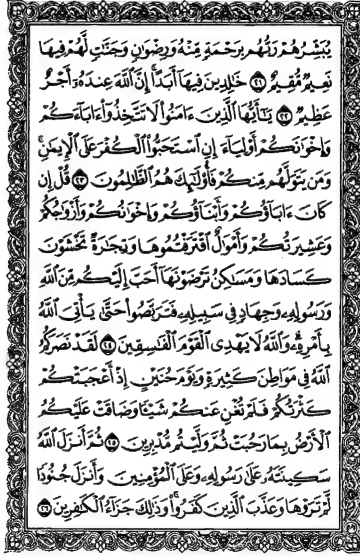 يُبَشِّرُهُمْ رَبُّهُم بِرَحْمَةٍ مِّنْهُ وَرِضْوَانٍ وَجَنَّاتٍ لَّهُمْ فِيهَا
نَعِيمٌ مُّقِيمٌ ۝٢١ خَالِدِينَ فِيهَا أَبَدًا ۚ إِنَّ اللَّهَ عِندَهُۥٓ أَجْرٌ
عَظِيمٌ ۝٢٢ يَٰٓأَيُّهَا الَّذِينَ ءَامَنُوا لَا تَتَّخِذُوٓا ءَابَآءَكُمْ
وَإِخْوَانَكُمْ أَوْلِيَآءَ إِنِ اسْتَحَبُّوا الْكُفْرَ عَلَى الْإِيمَٰنِ ۚ
وَمَن يَتَوَلَّهُم مِّنكُمْ فَأُولَٰٓئِكَ هُمُ الظَّالِمُونَ ۝٢٣ قُلْ إِن
كَانَ ءَابَآؤُكُمْ وَأَبْنَآؤُكُمْ وَإِخْوَانُكُمْ وَأَزْوَاجُكُمْ
وَعَشِيرَتُكُمْ وَأَمْوَالٌ اقْتَرَفْتُمُوهَا وَتِجَارَةٌ تَخْشَوْنَ
كَسَادَهَا وَمَسَاكِنُ تَرْضَوْنَهَآ أَحَبَّ إِلَيْكُم مِّنَ اللَّهِ
وَرَسُولِهِۦ وَجِهَادٍ فِي سَبِيلِهِۦ فَتَرَبَّصُوا حَتَّىٰ يَأْتِيَ اللَّهُ
بِأَمْرِهِۦ ۗ وَاللَّهُ لَا يَهْدِي الْقَوْمَ الْفَاسِقِينَ ۝٢٤ لَقَدْ نَصَرَكُمُ
اللَّهُ فِي مَوَاطِنَ كَثِيرَةٍ وَيَوْمَ حُنَيْنٍ إِذْ أَعْجَبَتْكُمْ
كَثْرَتُكُمْ فَلَمْ تُغْنِ عَنكُمْ شَيْئًا وَضَاقَتْ عَلَيْكُمُ
الْأَرْضُ بِمَا رَحُبَتْ ثُمَّ وَلَّيْتُم مُّدْبِرِينَ ۝٢٥ ثُمَّ أَنزَلَ اللَّهُ
سَكِينَتَهُۥ عَلَىٰ رَسُولِهِۦ وَعَلَى الْمُؤْمِنِينَ وَأَنزَلَ جُنُودًا
لَّمْ تَرَوْهَا وَعَذَّبَ الَّذِينَ كَفَرُوا ۚ وَذَٰلِكَ جَزَآءُ الْكَافِرِينَ ۝٢٦